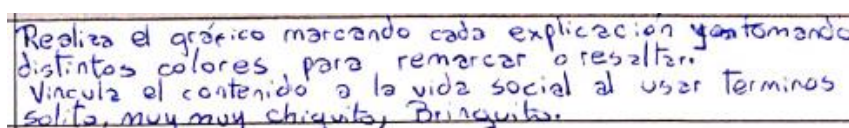 Realiza el gráfico marcando cada explicación y tomando
distintos colores para remarcar o resaltar.
Vincula el contenido a la vida social al usar terminos
solito, muy muy chiquito, Brinquito.